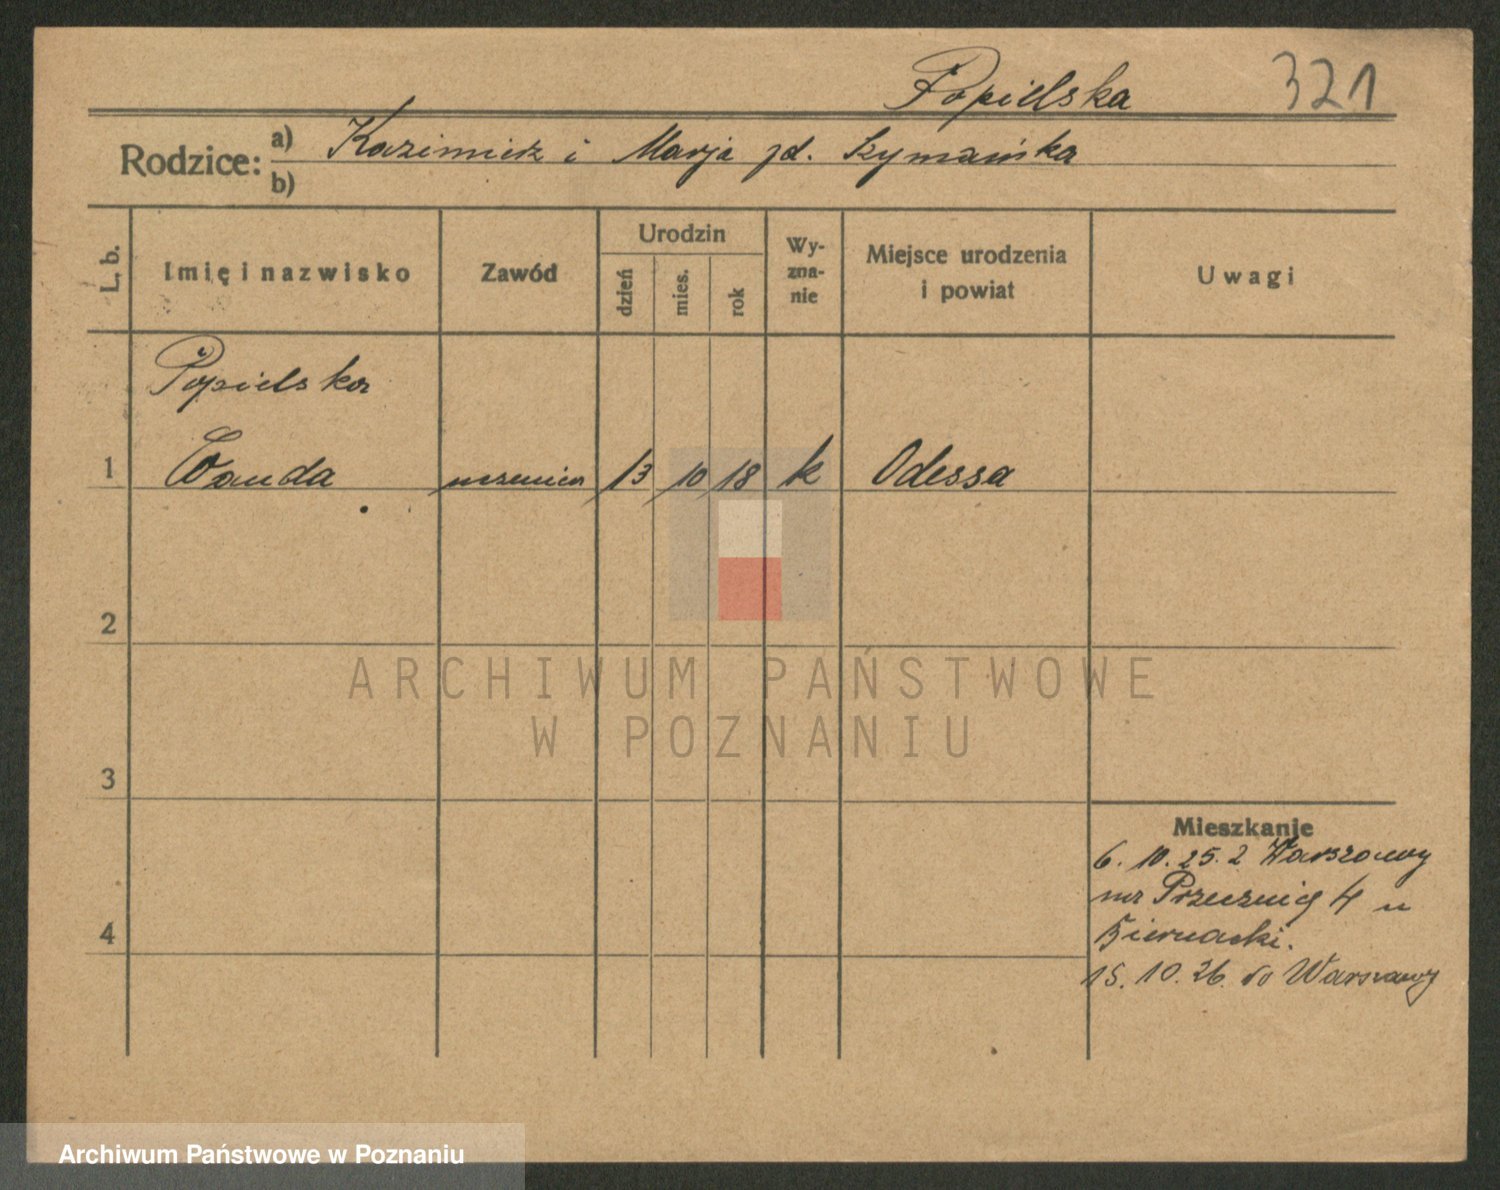 Popielska 321
Rodzice: a) Kazimierz i Marja zd. Szymańska
b)
L. b. Imię i nazwisko Zawód Urodzin dzień mies. rok Wyznanie Miejsce urodzenia i powiat Uwagi
Popielska
1 Wanda uczenica 13 10 18 k Odessa
2
3
4
Mieszkanie
6. 10. 25. z Warszawy
na Przecznicę 4 u
Biernacki.
15. 10. 26. do Warszawy
ARCHIWUM PAŃSTWOWE
W POZNANIU
Archiwum Państwowe w Poznaniu